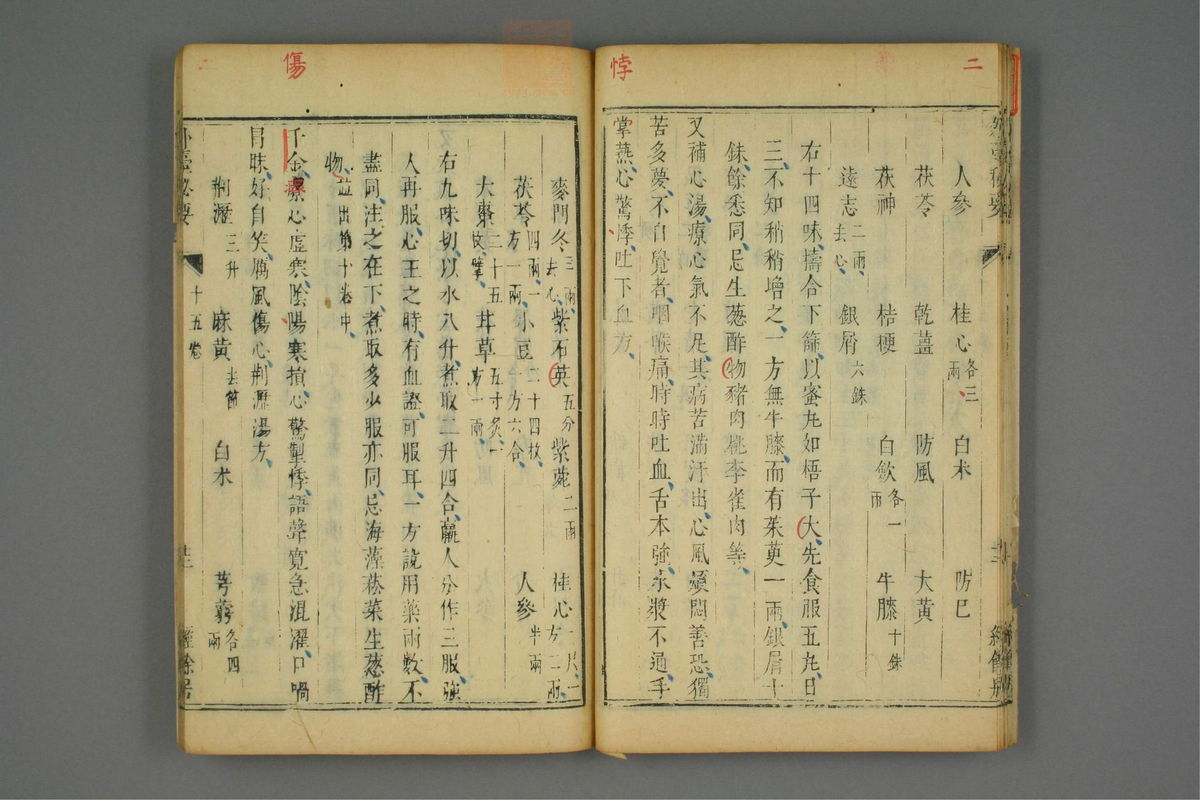 二
悖
人參　桂心各三兩　白术　防巳
茯苓　乾薑　防風　大黃
茯神　桔梗　白歛各一兩　牛膝十銖
遠志二兩去心　銀屑六銖
右十四味擣合下篩以蜜丸如梧子大先食服五丸日
三不知稍稍增之一方無牛膝而有茱萸一兩銀屑十
銖餘悉同忌生葱酢物豬肉桃李雀肉等
又補心湯療心氣不足其病苦滿汗出心風煩悶善恐獨
苦多夢不自覺者咽喉痛時時吐血舌本強水漿不通手
掌熱心驚悸吐下血方
傷
二
麥門冬三兩去心　紫石英五分　紫菀二兩　桂心一尺一方二兩
茯苓四兩一方一兩　小豆二十四枚一方六合　人參半兩
大棗二十五枚擘　甘草五寸炙一方一兩
右九味切以水八升煮取二升四合羸人分作三服強
人再服心王之時有血證可服耳一方說用藥兩數不
盡同注之在下煮取多少服亦同忌海藻菘菜生葱酢
物並出第十卷中
千金療心虛寒陰陽寒損心驚掣悸語聲寬急混濁口喎
冒昧好自笑厲風傷心荊瀝湯方
荊瀝三升　麻黃去節　白术　芎藭各四兩
外臺秘要　十五卷　十二　經餘居